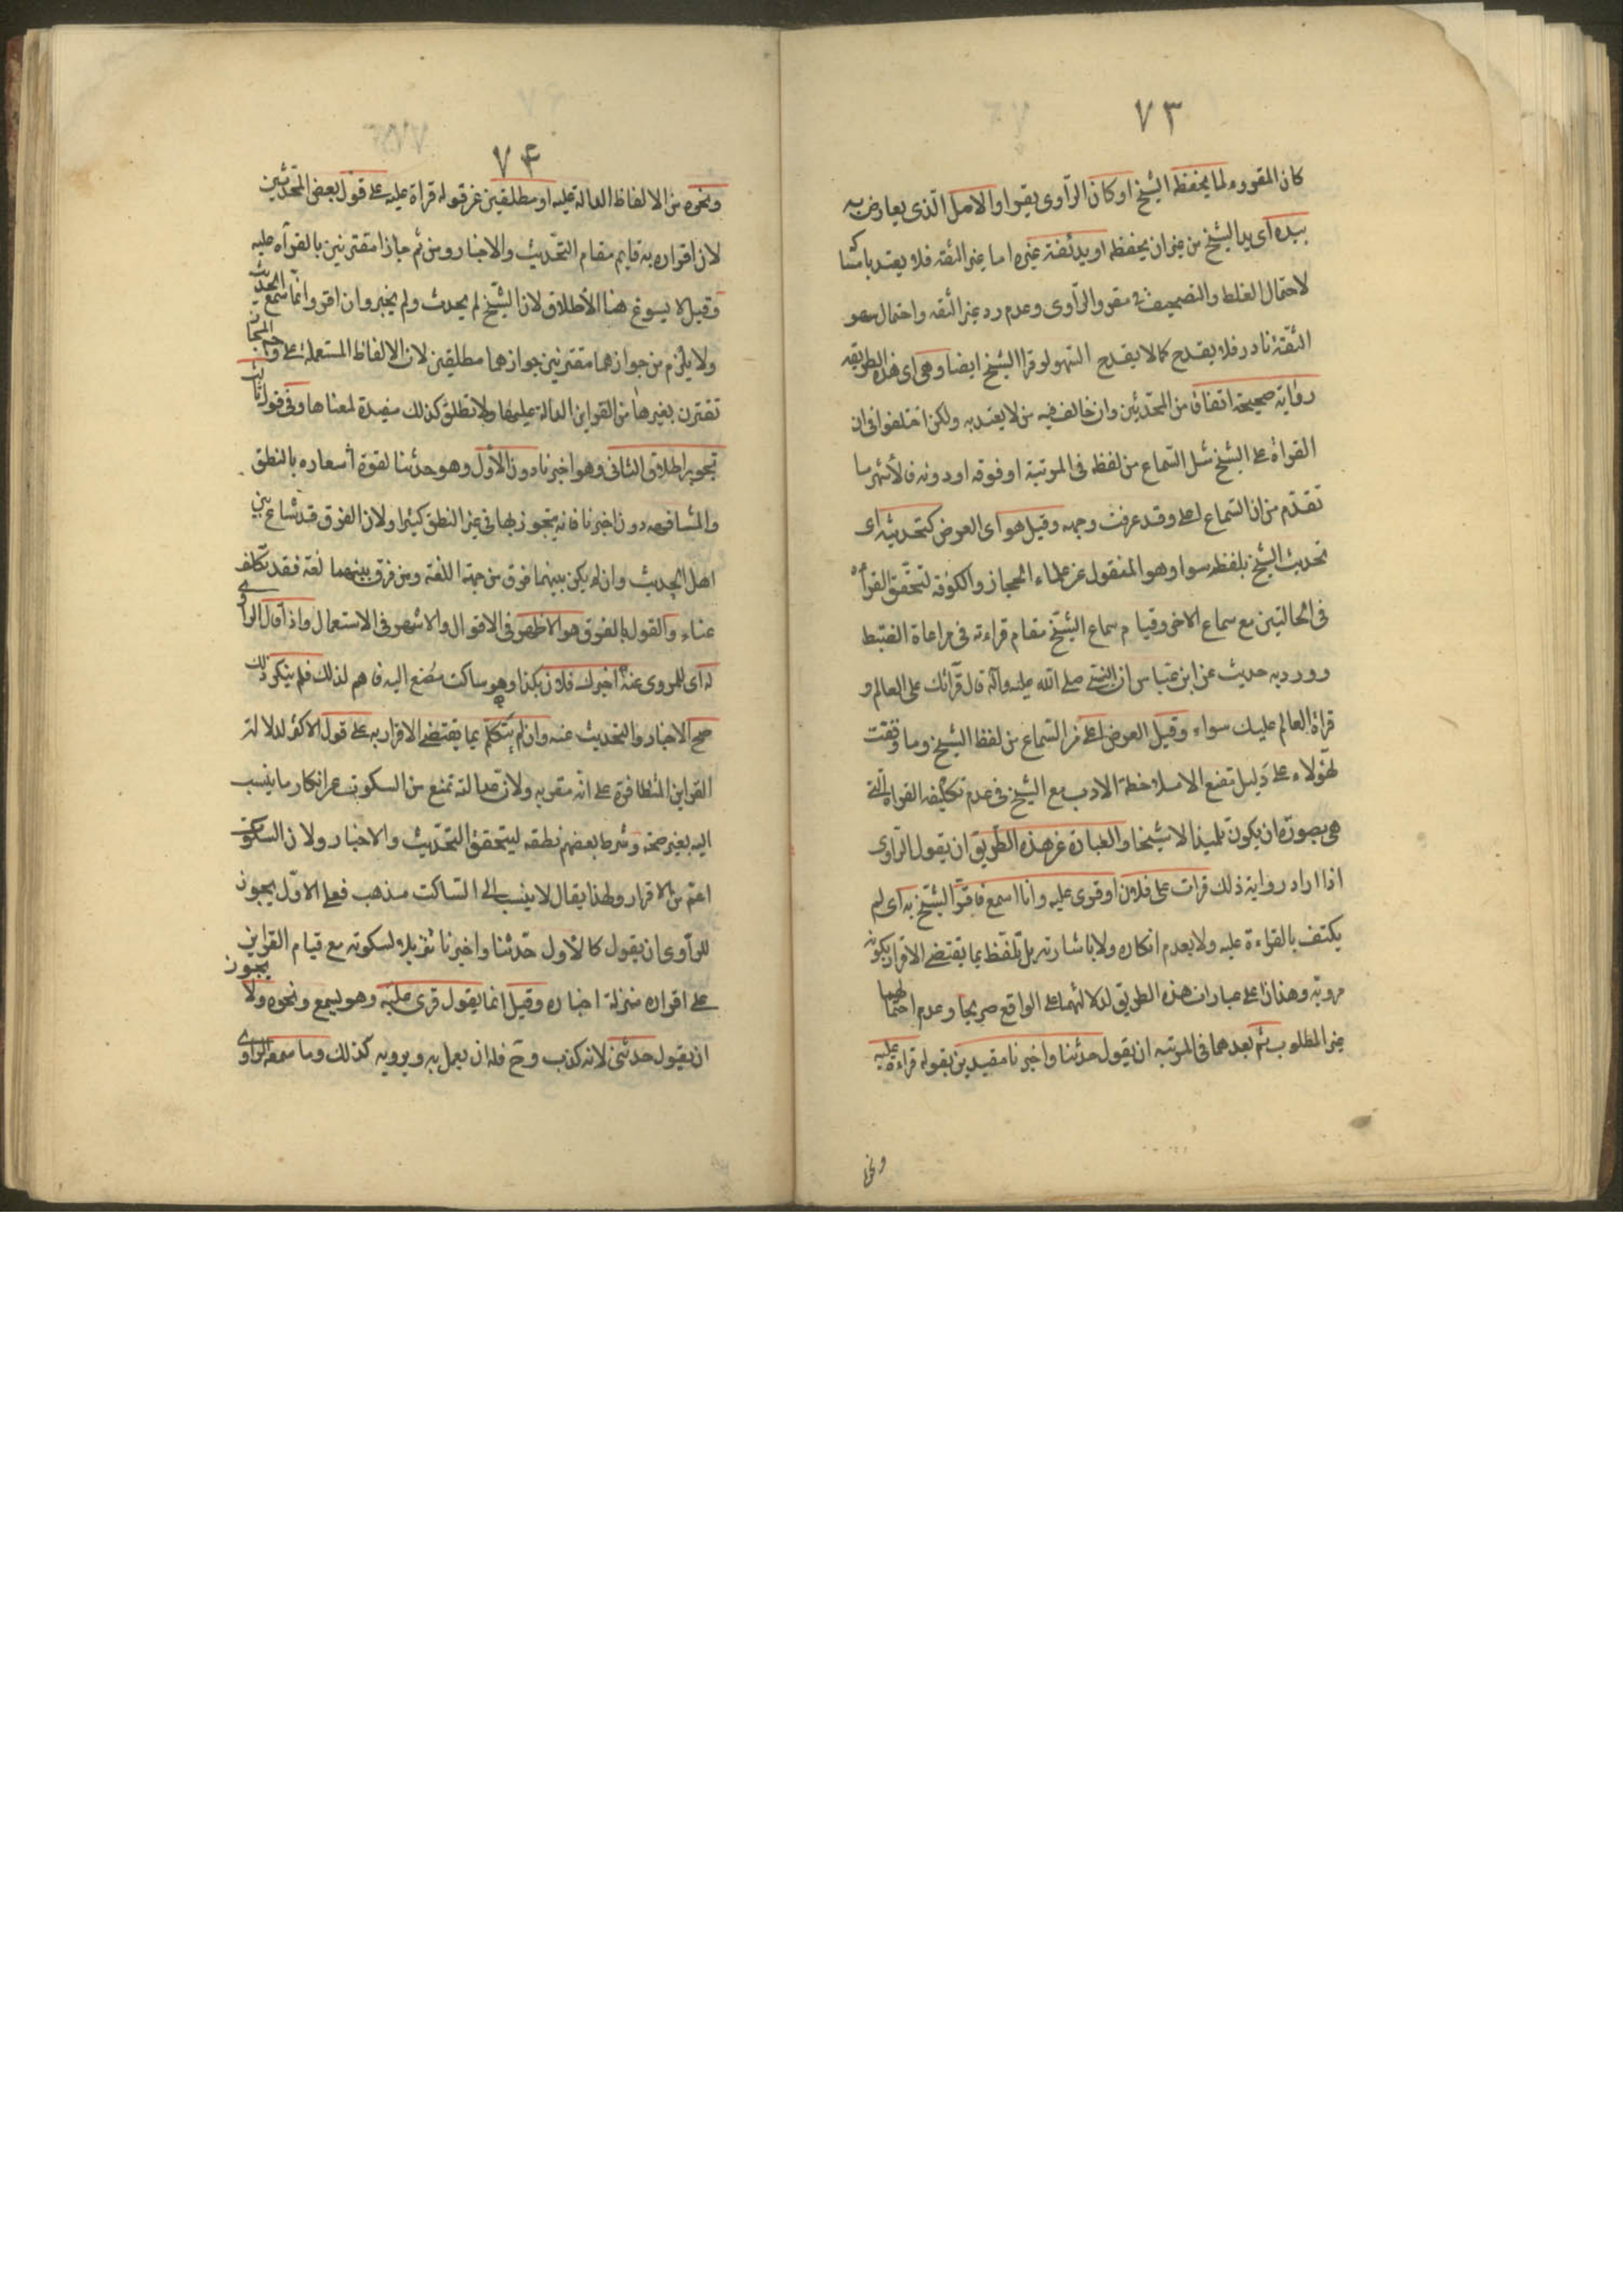 ٧٣
كان المقروء لما يحفظه الشيخ او كان الراوى يقرا والاصل الذى يعارض به
بيده اى يد الشيخ من غير ان يحفظه او يد ثقة غيره اما غير الثقه فلا يعتد بامساكه
لاحتمال الغلط والتصحيف فى مقرو الراوى وعدم رد غير الثقه واحتمال سهو
الثقة نادر فلا يقدح كما لا يقدح السهو لو قرا الشيخ ايضا وهى اى هذه الطريقه
رواية صحيحة اتفاقا من المحدثين وان خالف فيه من لا يعتد به ولكن اختلفوا فى ان
القراة على الشيخ مثل السماع من لفظه فى المرتبة او فوقه او دونه فالاشهر ما
تقدم من ان السماع اعلى وقد عرفت وجهه وقيل هو اى العرض كتحديثه اى
تحديث الشيخ بلفظه سوا وهو المنقول عن علماء الحجاز والكوفه لتحقق القراه
فى الحالتين مع سماع الاخر وقيام سماع الشيخ مقام قراءته فى مراعاة الضبط
وورد به حديث عن ابن عباس ان النبى صلى الله عليه وآله قال قرآئك على العالم و
قراة العالم عليك سواء وقيل العرض اعلى من السماع من لفظ الشيخ وما وقفت
لهؤلاء على دليل مقنع الا ملاحظة الادب مع الشيخ فى عدم تكليفه القراة التى
هى بصورة ان يكون تلميذا لا شيخا والعبارة عن هذه الطريق ان يقول الراوى
اذا اراد رواية ذلك قرات على فلان او قرى عليه وانا اسمع فاقر الشيخ به اى لم
يكتف بالقراءة عليه ولا بعدم انكاره ولا باشارته بل تلفظ بما يقتضى الاقرار بكونه
مرويه وهذان اعلى عبارات هذه الطريق لدلالتهما على الواقع صريحا وعدم احتمالهما
غير المطلوب ثم بعدهما فى المرتبه ان يقول حدثنا واخبرنا مقيدين بقوله قراءة عليه
ونحو
٧۴
ونحوه من الالفاظ الدالة عليه او مطلقين عن قوله قراة عليه على قول بعض المحدثين
لان اقراره به قايم مقام التحديث والاخبار ومن ثم جازا مقترنين بالقرآه عليه
وقيل لا يسوغ هنا الأطلاق لان الشيخ لم يحدث ولم يخبر وان اقر وانما سمع الحديث
ولا يلزم من جوازهما مقترنين جوازهما مطلقين لان الالفاظ المستعملة على وجه المجاز
تقترن بغيرها من القراين الدالة عليها ولا تطلق كذلك مفيدة لمعناها وفى قول ثالث
تجويز اطلاق الثانى وهو اخبرنا دون الأول وهو حدثنا لقوة أشعاره بالنطق
والمشافهه دون اخبرنا فانه يتجوز بها فى غير النطق كثيرا ولان الفرق قد شاع بين
اهل الحديث وان لم يكن بينهما فرق من جهة اللغة ومن فرق بينهما لغة فقد تكلف
عناء والقول بالفرق هو الاظهر فى الاقوال والاشهر فى الاستعمال واذا قال الراوى
له اى للمروى عنه اخبرك فلان بكذا وهو ساكت مصغ اليه فاهم لذلك فلم ينكر ذلك
صح الاخبار والتحديث عنه وان لم يتكلم بما يقتضى الاقرار به على قول الاكثر لدلالة
القراين المتظافرة على انه مقر به ولان عدالته تمنع من السكوت عن انكار ما ينسب
اليه بغير صحة وشرط بعضهم نطقه ليتحقق التحديث والاخبار ولان السكوت
اعم من الاقرار ولهذا يقال لا ينسب الى الساكت مذهب فعلى الاول يجوز
للراوى ان يقول كالأول حدثنا واخبرنا تنزيلا لسكوته مع قيام القراين
على اقراره منزلة اخباره وقيل انما يقول قرى عليه وهو يسمع ونحوه ولا يجوز
ان يقول حدثنى لانه كذب وح فله ان يعمل به ويرويه كذلك وما سمعه الراوى